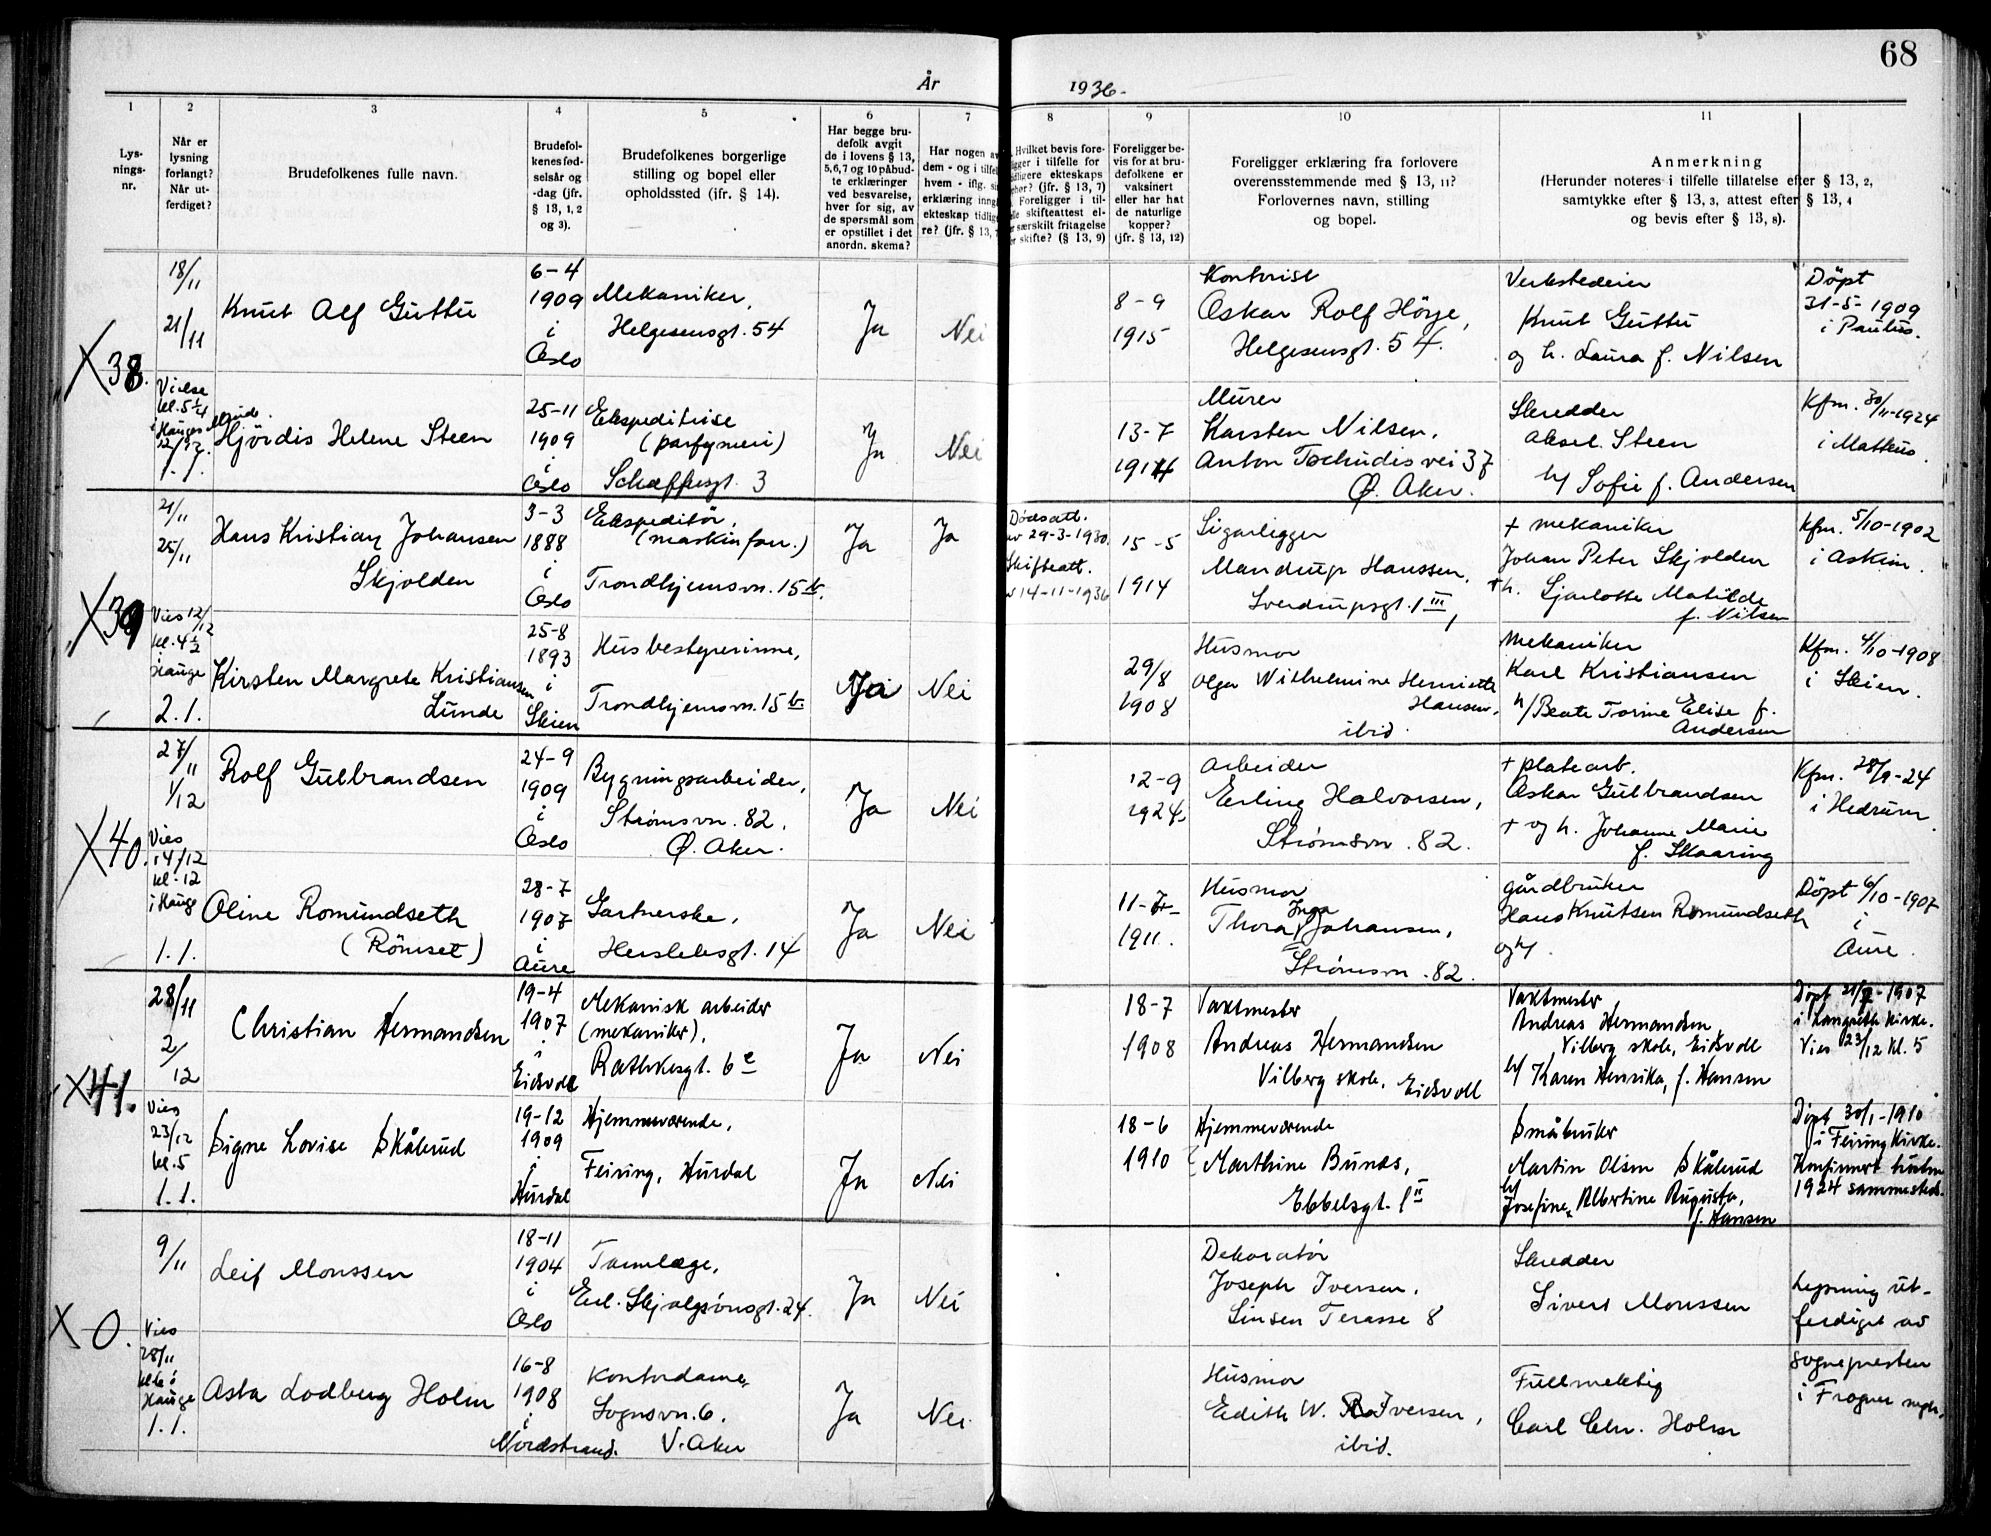 68
År 1936.
1 2 3 4 5 6 7 8 9 10 11
Lys-
nings-
nr.
Når er
lysning
forlangt?
Når ut-
ferdiget?
Brudefolkenes fulle navn.
Brudefol-
kenes fød-
selsår og
-dag (jfr.
§ 13, 1, 2
og 3).
Brudefolkenes borgerlige
stilling og bopel eller
opholdssted (jfr. § 14).
Har begge bru-
defolk avgit
de i lovens § 13,
5,6,7 og 10 påbud-
te erklæringer
ved besvarelse,
hver for sig, av
de spørsmål som
er opstillet i det
anordn. skema?
Har nogen av
dem - og i tilfel
hvem - iflg. si
erklæring inngå
ekteskap tidlige
re? (jfr. § 13, 7
Hvilket bevis fore-
ligger i tilfelle for
tidligere ekteskaps
(jfr. § 13, 7)
Foreligger i til-
skifteattest el-
særskilt fritagelse
skifte? (§ 13, 9)
Foreligger be-
vis for at bru-
defolkene er
vaksinert
eller har hat
de naturlige
kopper?
(jfr. § 13, 12)
Foreligger erklæring fra forlovere
overensstemmende med § 13, 11?
Forlovernes navn, stilling
og bopel.
Anmerkning
(Herunder noteres i tilfelle tillatelse efter § 13, 2,
samtykke efter § 13, 3, attest efter § 13, 4
og bevis efter § 13, 8).
X 38.
18/11
21/11
Knut Alf Guttu
6-4
1909
i
Oslo
Mekaniker,
Helgesensgt. 54
Ja
Nei
8-9
1915
Kontorist
Oskar Rolf Hörje,
Helgesensgt. 54.
Verkstedeier
Knut Guttu
og h. Laura f. Nilsen
Döpt
31-5-1909
i Paulus.
Vielse
kl. 5 1/4
Hjördis Helene Steen
25-11
1909
i
Oslo
Ekspeditrise
(parfymeri)
Schæffersgt. 3
Ja
Nei
13-7
1914
Murer
Karsten Nilsen,
Anton Tschudis vei 37
Ø. Aker.
Skredder
Aksel Steen
h/ Sofie f. Andersen
Kfm. 30/11-1924
i Matteus.
X 39
21/11
25/11
Hans Kristian Johansen
Skjolden
3-3
1888
i
Oslo
Ekspeditör,
(maskinforr.)
Trondhjemsvn. 15 b.
Ja
Ja
Dødsatt.
av 29-3-1930.
Skifteatt.
14-11-1936
15-5
1914
Sigarligger
Mandrup Hanssen,
Sverdrupsgt. 1 III,
+ mekaniker
Johan Peter Skjolden
+ h. Sjarlotte Matilde
f. Nilsen
Kfm. 5/10-1902
i Askim.
Vies 12/12
kl. 4 1/2
i Hauge
2.1.
Kirsten Margrete Kristiansen
Lunde
25-8
1893
i
Skien
Husbestyrerinne,
Trondhjemsvn. 15 b.
Ja
Nei
29/8
1908
Husmor
Olga Wilhelmine Henriette
Hansen,
ibid.
Mekaniker
Karl Kristiansen
h/ Beate Torine Elise f.
Andersen
Kfm. 4/10-1908
i Skien.
X 40.
27/11
1/12
Rolf Gulbrandsen
24-9
1909
i
Oslo
Bygningsarbeider,
Strømsvn. 82.
Ø. Aker.
Ja
Nei
12-9
1924
Arbeider
Erling Halvorsen,
Strømsvn. 82.
+ platearb.
Oskar Gulbrandsen
+ og h. Johanne Marie
f. Skaaring
Kfm. 28/9-24
i Hedrum.
Vies
14/12
kl. 12
i Hauge
1.1.
Oline Romundseth
(Römset)
28-7
1907
i
Aure
Gartnerske,
Herslebsgt. 14
Ja
Nei
11-7-
1911.
Husmor
Thora Inga Johansen,
Strømsvn. 82.
gårdbruker
Hans Knutsen Romundseth
og h/.
Döpt 6/10-1907
i
Aure.
X 41.
28/11
2/12
Christian Hermandsen
19-4
1907
i
Eidsvoll
Mekanisk arbeider
(mekaniker),
Rathkesgt. 6 c
Ja
Nei
18-7
1908
Vaktmester
Andreas Hermandsen
Vilberg skole, Eidsvoll
Vaktmester
Andreas Hermandsen,
Vilberg skole, Eidsvoll
h/ Karen Henrikka, f. Hansen
Döpt 21/7-1907
i Langseth Kirke.
Vies 23/12 kl. 5
Vies
23/12
kl. 5
1.1.
Signe Lovise Skålerud
19-12
1909
i
Hurdal
Hjemmeværende,
Feiring, Hurdal
Ja
Nei
18-6
1910
Hjemmeværende
Marthine Bunds,
Ebbelsgt. 1 II
Småbruker
Martin Olsen Skålerud
h/
Josefine Albertine Augusta,
f. Hansen
Döpt 30/1-1910
i Feiring Kirke.
Konfirmert høsten
1924 sammesteds.
X 0.
9/11
Leif Monssen
18-11
1904
i
Oslo
Tannlæge,
Erl. Skjalgsönsgt. 24.
Ja
Nei
Dekoratør
Joseph Iversen,
Sinsen Terasse 8
Skredder
Sivert Monssen
Lysning ut-
ferdiget av
sognepresten
i Frogner
Vies
28/11
kl. 6 i
Hauge
1.1.
Asta Lodberg Holm
16-8
1908
i
Nordstrand.
Kontordame,
Sognsvn. 6.
V. Aker
Ja
Nei
Husmor
Edith W. Iversen,
ibid.
Fullmektig
Carl Chr. Holm